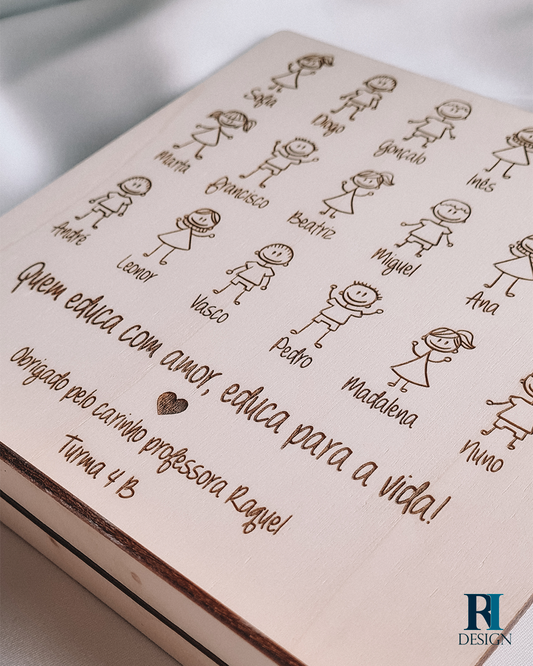 Sofia Diogo Gonçalo Inês
Marta Francisco Beatriz Miguel Ana
André Leonor Vasco Pedro Madalena Nuno
Quem educa com amor, educa para a vida!
Obrigado pelo carinho professora Raquel
Turma 4 B
RH
DESIGN